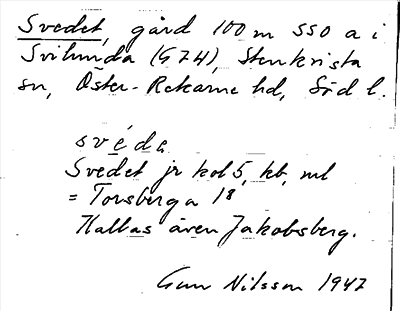 Svedet, gård 100 m SSO a i
Svilunda (G 74), Stenkvista
sn, Öster-Rekarne hd, Söd l.
své̱da
Svedet jr kol 5, kb, ml
= Torsberga 1⁸
Kallas även Jakobsberg.
Gun Nilsson 1947